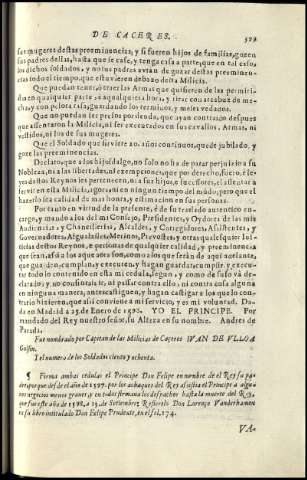 DE CACERES.
sus mugeres destas preeminencias, y si fueren hijos de familias, gozen
sus padres dellas, hasta que se case, y tenga casa a parte, que en tal caso,
los dichos soldados, y no sus padres avrán de gozar destas preeminen-
cias todo el tiempo que estuvieren debaxo desta Milicia.
Que puedan tener, y traer las Armas que quisieren de las permiti-
das en qualquiera parte, y a qualquiera hora, y tirar con arcabuz de me-
cha, y con pelota rasa, guardando los terminos, y meses vedados.
Que no puedan ser presos por deuda, que ayan contraido despues
que assentaron la Milicia, ni ser executados en sus cavallos, Armas, ni
vestidos, ni los de sus mugeres.
Que el Soldado que sirviere 20. años continuos, quede jubilado, y
goze las preeminencias.
Declaro, que a los hijosdalgo, no solo no ha de parar perjuizio a su
Nobleza, ni a las libertades, y exempciones, que por derecho, fuero, è le-
yes destos Reynos les pertenecen, ni a sus hijos, y sucessores, el assentar a
servir en esta Milicia, agora, ni en ningun tiempo del mûdo, pero que el
hazerlo sea calidad de mas honra, y estimacion en sus personas.
Por tanto en virtud de la presente, è de su traslado autentico en-
cargo, y mando a los del mi Consejo, Presidentes, y Oydores de las mis
Audiencias, y Chancillerias, Alcaldes, y Corregidores, Assistentes, y
Governadores, Alguaziles, Merinos, Prevostes, y otras qualesquier Jus-
ticias destos Reynos, è personas de qualquier calidad, y preeminencia
que sean, assi a los que aora son, como a los que serán de aqui adelante,
que guarden, cumplan, y executen, y hagan guardar, cumplir, y execu-
tar todo lo contenido en esta mi cedula, segun, y como de suso vá de-
clarado; y no consientan ir, ni passar contra ello, ni contra cosa alguna
en ninguna manera, antes castiguen, y hagan castigar a los que lo con-
trario hizieren, que assi conviene a mi servicio, y es mi voluntad. Da-
da en Madrid a 25. de Enero de YO EL PRINCIPE. Por
mandado del Rey nuestro señor, su Alteza en su nombre. Andres de
Parada.
Fue nombrado por Capitan de las Milicias de Caceres IVAN DE VLLOA
Golfin.
Y el numero de los Soldados ciento y ochenta.
¶ Firma ambas cedulas el Principe Don Felipe en nombre de el Rey su pa-
dre, porque desde el año de 1597. por los achaques del Rey assistia el Principe a algu-
nos negocios menos graves, y en todas firmava los despachos hasta la muerte del Rey,
que fue este año de 1598. a 13. de Setiembre. Refierelo Don Lorenço Vanderhamen
en su libro intitulado Don Felipe Prudente, en el fol. 174.
VA-